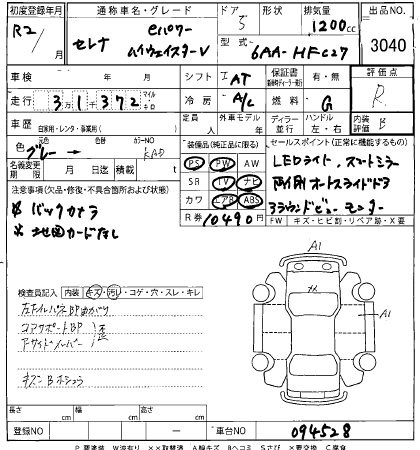 初度登録年月 通称車名・グレード ドア 形状 排気量 出品NO.
R2/ 月 セレナ eパワー ハイウェイスターV 5 1200cc 3040
型式 6AA-HFC27
車検 年 月 シフト IAT 保証書 有・無 評価点
走行 31372 マイル キロ 冷房 A/C 燃料 G R
車歴 自家用・レンタ・事業用( ) 定員 人 外車モデル 年 ディーラー 並行 ハンドル 左・右 内装 B
色 グレー → 色替 カラーNO KAD 装備品(純正品に限る) セールスポイント(正常に機能する)
名義変更期限 月 日迄 積載 t PS PW AW LEDライト、スマートミラー
注意事項(欠品・修復・不具合箇所および状態) SR TV ナビ 両側オートスライドドア
※ バックカメラ カワ エアB ABS アラウンドビューモニター
※ 地図カードなし R券 10490円 FW キズ・ヒビ割・リペア跡・X要
検査員記入 内装 キズ・汚レ・コゲ・穴・スレ・キレ
コアサポートBP
A1
A1
長さ cm 幅 cm 高さ cm
登録NO ー 車台NO 094528
P 要塗装 W波有り ××取替済 A線キズ Bヘコミ Sさび X要交換 C腐食